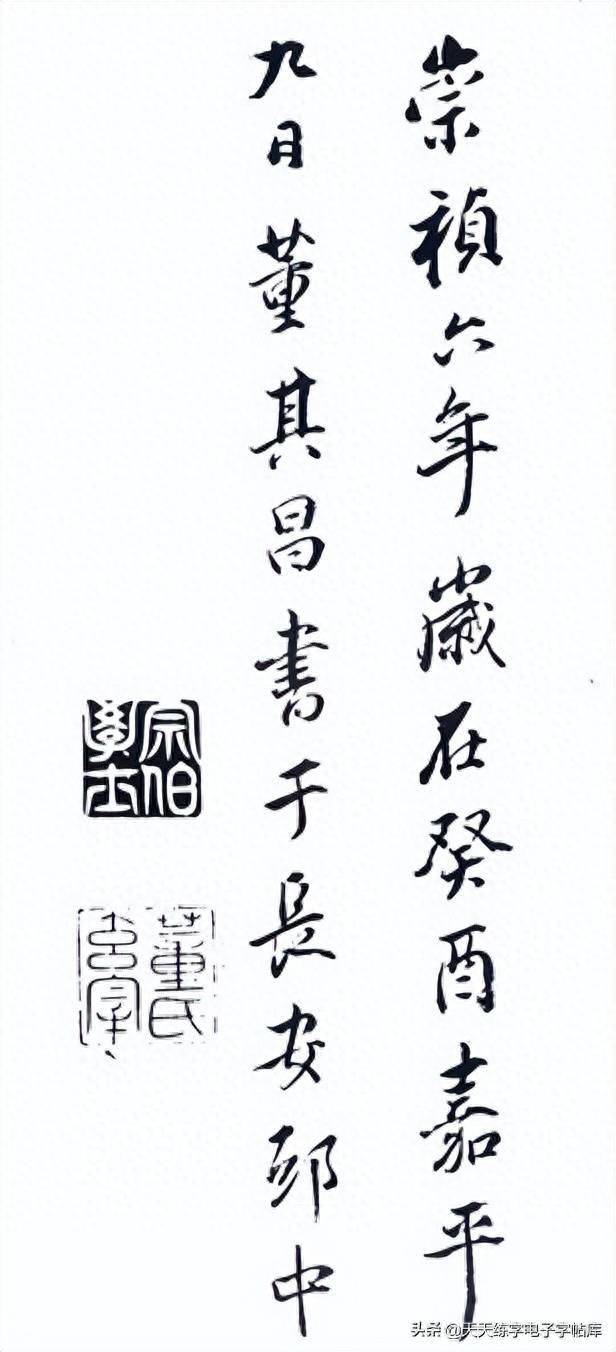 崇禎六年歲在癸酉嘉平
九日董其昌書于長安邸中
宗伯學士
董氏玄宰
头条 @天天练字电子字帖库